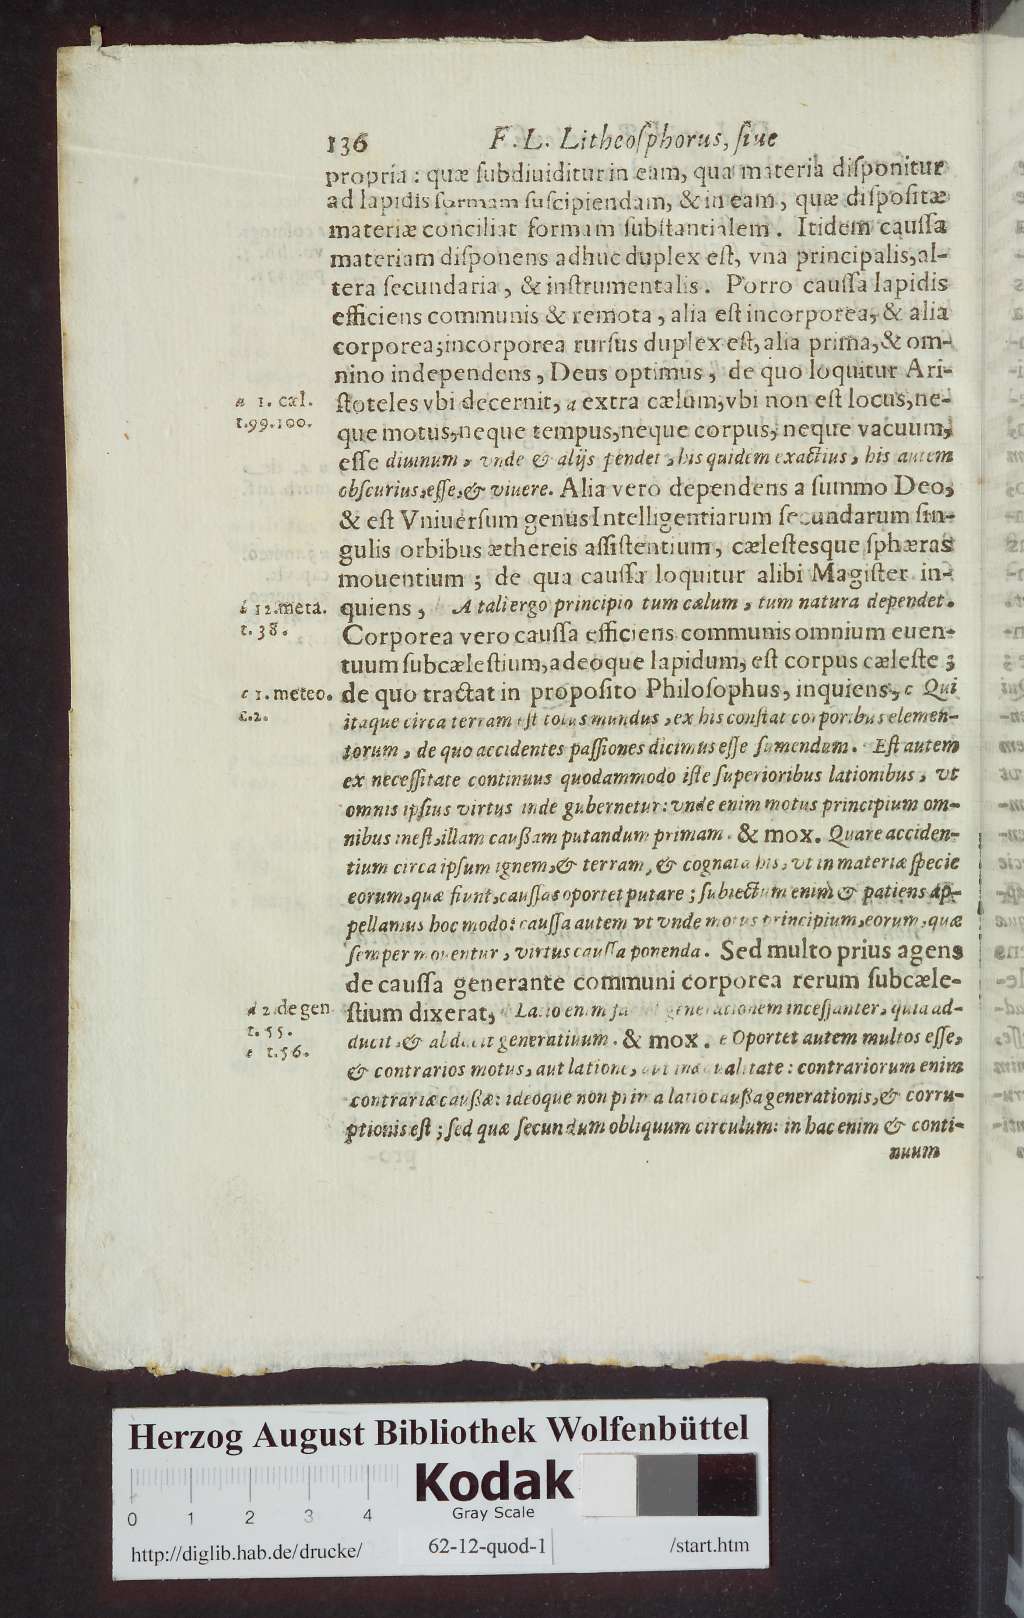 136 F. L. Litheoſphorus, ſiue
propria: quæ ſubdiuiditur in eam, qua materia diſponitur
ad lapidis formam ſuſcipiendam, & in eam, quæ diſpoſitæ
materiæ conciliat formam ſubſtantialem. Itidem cauſſa
materiam diſponens adhuc duplex eſt, vna principalis, al-
tera ſecundaria, & inſtrumentalis. Porro cauſſa lapidis
efficiens communis & remota, alia eſt incorporea, & alia
corporea; incorporea rurſus duplex eſt, alia prima, & om-
nino independens, Deus optimus, de quo loquitur Ari-
a 1. cæl. ſtoteles vbi decernit, a extra cælum, vbi non eſt locus, ne-
t.99.100. que motus, neque tempus, neque corpus, neque vacuum,
eſſe diuinum, vnde & alijs pendet, his quidem exactius, his autem
obſcurius, eſſe, & viuere. Alia vero dependens a ſummo Deo,
& eſt Vniuerſum genus Intelligentiarum ſecundarum ſin-
gulis orbibus æthereis aſſiſtentium, cæleſtesque ſphæras
mouentium; de qua cauſſa loquitur alibi Magiſter in-
b 12. meta. quiens, A tali ergo principio tum cælum, tum natura dependet.
t.38. Corporea vero cauſſa efficiens communis omnium euen-
tuum ſubcæleſtium, adeoque lapidum, eſt corpus cæleſte;
c 1. meteo. de quo tractat in propoſito Philoſophus, inquiens, c Qui
c.2. itaque circa terram eſt totus mundus, ex his conſtat corporibus elemen-
torum, de quo accidentes paſſiones dicimus eſſe ſumendum. Eſt autem
ex neceſſitate continuus quodammodo iſte ſuperioribus lationibus, vt
omnis ipſius virtus inde gubernetur: vnde enim motus principium om-
nibus ineſt, illam cauſſam putandum primam. & mox. Quare acciden-
tium circa ipſum ignem, & terram, & cognata his, vt in materiæ ſpecie
eorum, quæ fiunt, cauſſas oportet putare; ſubiectum enim & patiens ap-
pellamus hoc modo: cauſſa autem vt vnde motus principium, eorum, quæ
ſemper mouentur, virtus cauſſa ponenda. Sed multo prius agens
de cauſſa generante communi corporea rerum ſubcæle-
d 2. de gen ſtium dixerat, Latio enim generationem inceſſanter, quia ad-
t.55. ducit, & abducit generatiuum. & mox. e Oportet autem multos eſſe,
e t.56. & contrarios motus, aut latione, aut inæqualitate: contrariorum enim
contrariæ cauſſæ: ideoque non prima latio cauſſa generationis, & corru-
ptionis eſt; ſed quæ ſecundum obliquum circulum: in hac enim & conti-
nuum
Herzog August Bibliothek Wolfenbüttel
Kodak
Gray Scale
0 1 2 3 4
http://diglib.hab.de/drucke/ 62-12-quod-1 /start.htm